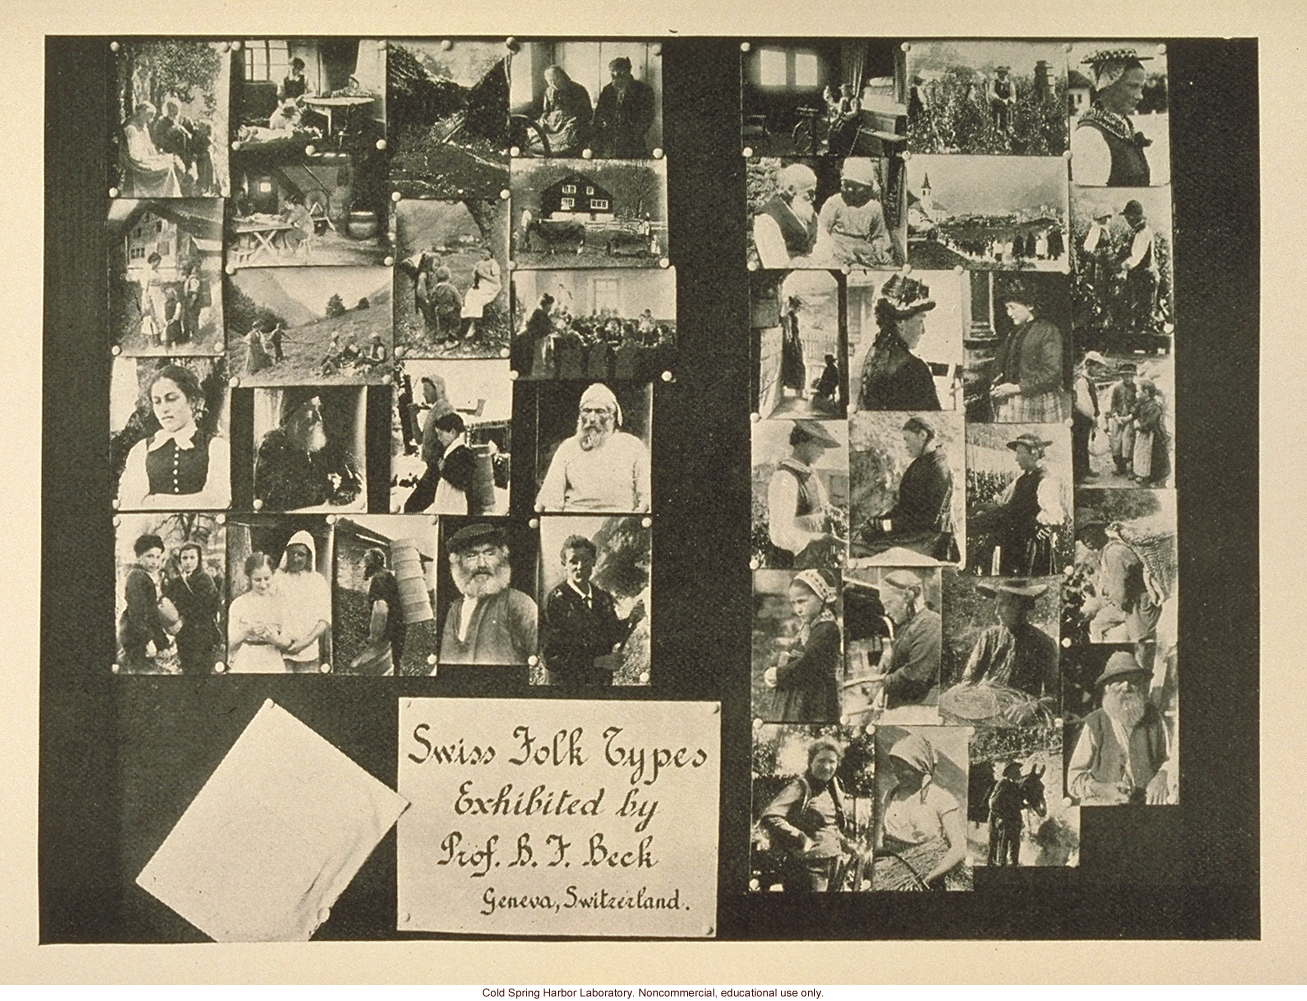 Swiss Folk Types
Exhibited by
Prof. B. F. Beck
Geneva, Switzerland.
Cold Spring Harbor Laboratory. Noncommercial, educational use only.